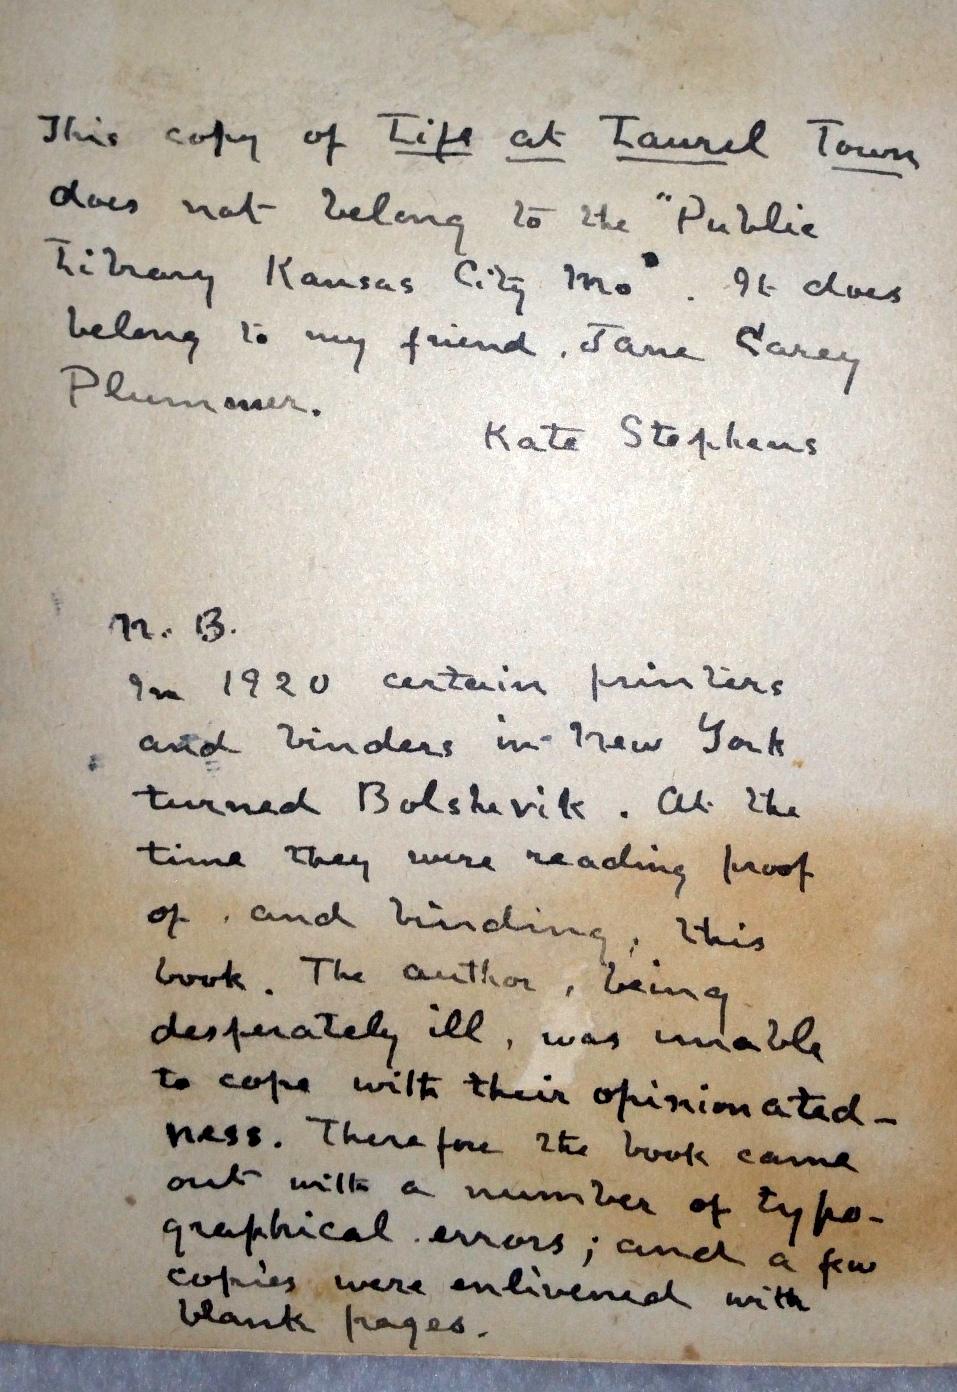 This copy of Life at Laurel Town
does not belong to the "Public
Library Kansas City Mo". It does
belong to my friend, Jane Carey
Plummer.
Kate Stephens
N. B.
In 1920 certain printers
and binders in New York
turned Bolshevik. At the
time they were reading proof
of, and binding, this
book. The author, being
desperately ill, was unable
to cope with their opinionated-
ness. Therefore the book came
out with a number of typo-
graphical errors; and a few
copies were enlivened with
blank pages.